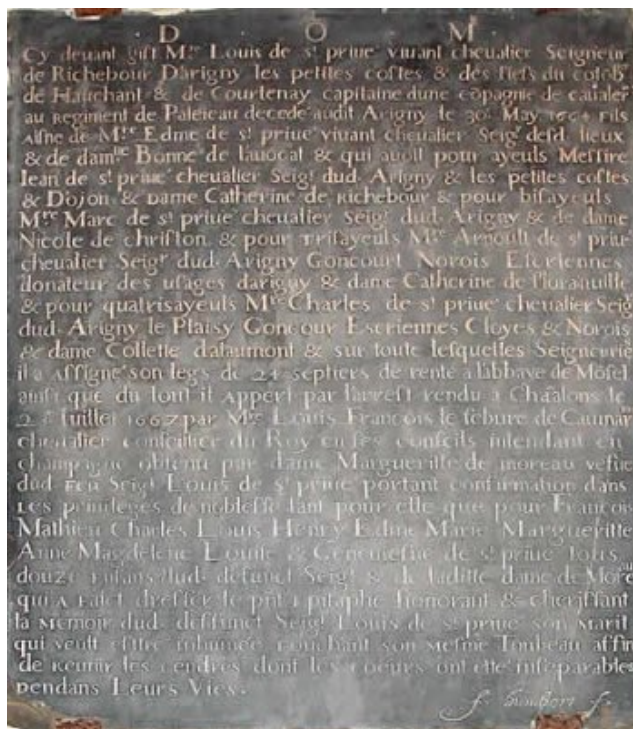 D O M
Cy deuant gist M.re Louis de st priue viuant cheualier Seigneur
de Richebour Darigny les petites costes & des fiefs du
de Hauchant & de Courtenay capitaine dune cōpagnie de caualer
au Regiment de Paleicau decede audit Arigny le 30. May fils
Aisne de M.re Edme de st priue viuant cheualier Seigr desd. lieux
& de damlle Bonne de lauocat & qui auoit pour ayeuls Messire
Iean de st priue cheualier Seigr dud. Arigny & les petites costes
& Dojon & Dame Catherine de Richebour & pour bisayeuls
M.re Marc de st priue cheualier Seigr dud. Arigny & de dame
Nicole de christon & pour Trisayeuls M.re Arnoult de st priue
cheualier Seigr dud. Arigny Goncourt Norois Escriennes
donateur des usages darigny & dame Catherine de
& pour quatrisayeuls M.re Charles de st priue cheualier Seig
dud. Arigny le Plaisy Goncour Escriennes Cloyes & Norois
& dame Collette dalaumont & sur toute lesquelles Seigneurie
il a Assigne son legs de 24 septiers de rente a labbaye de
ainsi que du tout il Appert par larrest rendu a Chaalons le
Iuillet 1667 par M.re Louis François le febure de Caumar
cheualier conseillier du Roy en ses conseils intendant en
champagne obtenu par dame Margueritte de moreau vefue
dud. Feu Seigr Louis de st priue portant confirmation dans
Les priuileges de noblesse tant pour elle que pour François
Mathieu Charles Louis Henry Edme Marie Margueritte
Anne Magdelene Louise & Geneuiefue de st priue tous
douze enfans dud. defunct Seigr & de laditte dame de
qui A Faict dresser le pnt Epitaphe honorant & cherissant
la Memoir dud. deffunct Seigr Louis de st priue son Marit
qui veult estre inhumée couchant son Mesme Tonbeau affin
de Reunir les cendres dont les coeurs ont esté inseparables
pendans Leurs Vies.